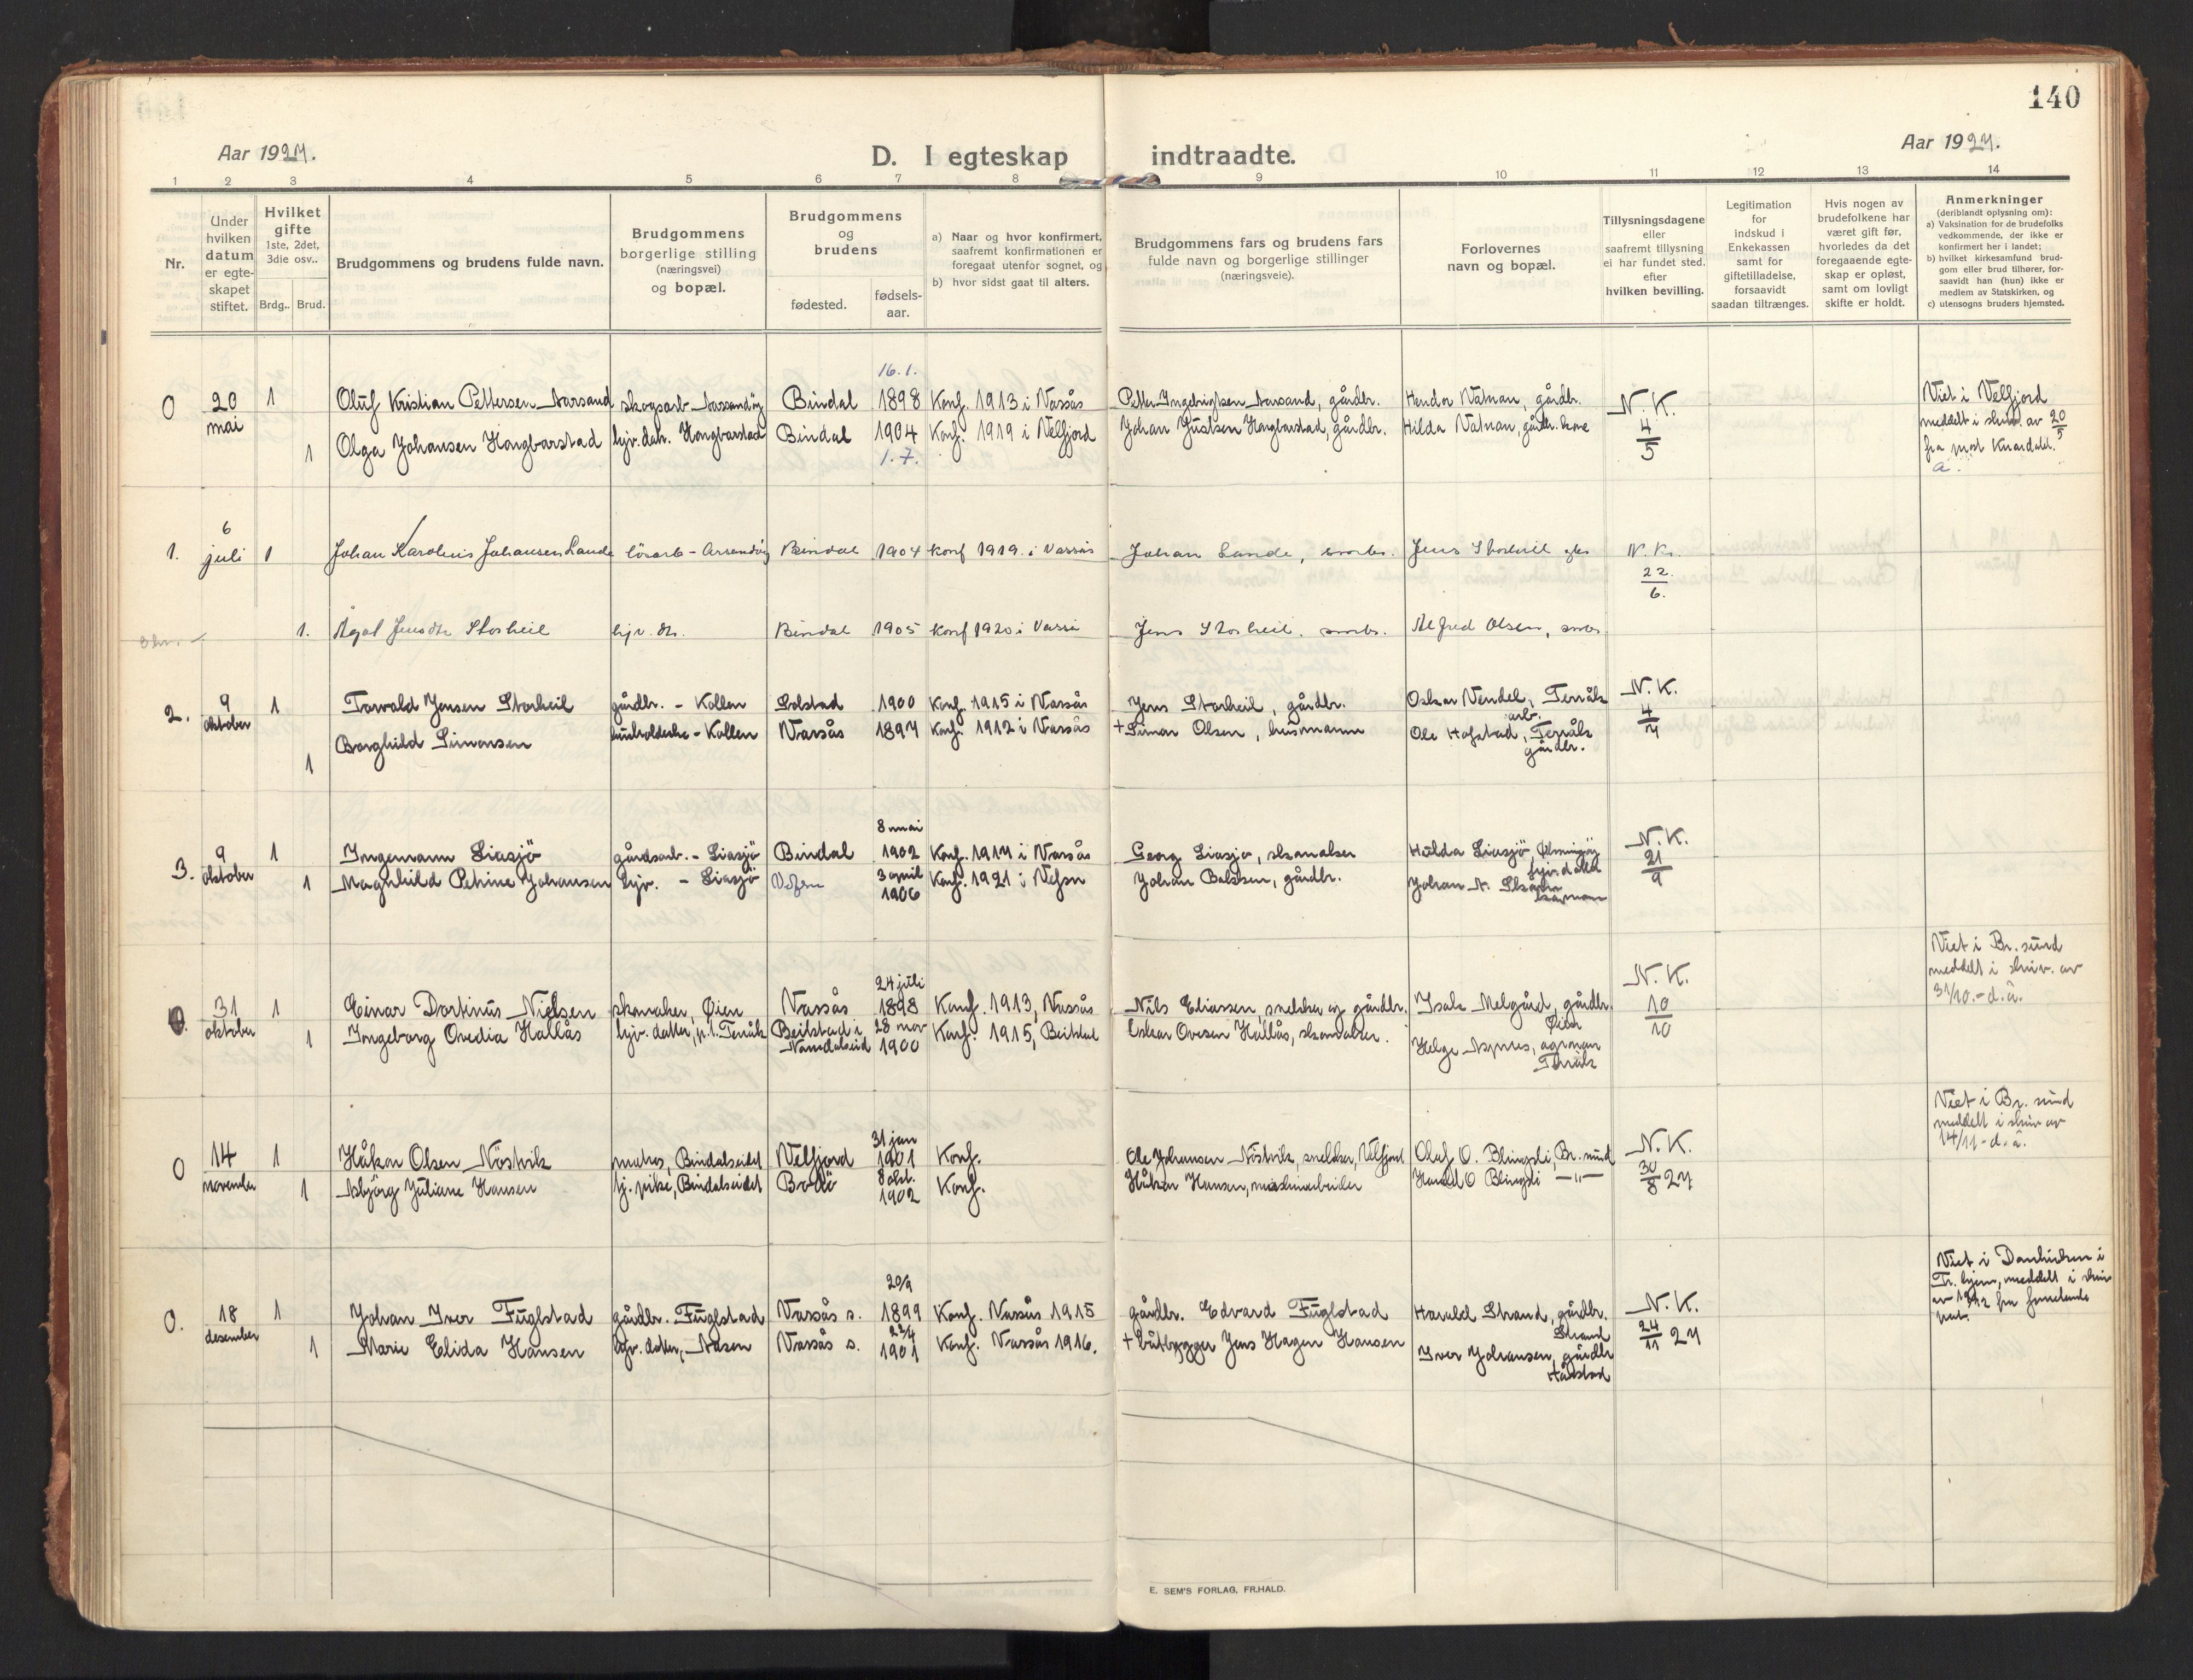 140
Aar 1927.
D. I egteskap indtraadte.
Aar 1927.
1 2 3 4 5 6 7 8 9 10 11 12 13 14
Nr.
Under hvilken datum er egte-skapet stiftet.
Hvilket gifte
1ste, 2det, 3die osv..
Brdg.. Brud.
Brudgommens og brudens fulde navn.
Brudgommens borgerlige stilling (næringsvei) og bopæl.
Brudgommens og brudens
fødested.
fødsels-aar.
a) Naar og hvor konfirmert, saafremt konfirmationen er foregaat utenfor sognet, og
b) hvor sidst gaat til alters.
Brudgommens fars og brudens fars fulde navn og borgerlige stillinger (næringsveie).
Forlovernes navn og bopæl.
Tillysningsdagene eller saafremt tillysning ei har fundet sted. efter hvilken bevilling.
Legitimation for indskud i Enkekassen samt for giftetilladelse, forsaavidt saadan tiltrænges.
Hvis nogen av brudefolkene har været gift før, hvorledes da det foregaaende egte-skap er opløst, samt om lovligt skifte er holdt.
Anmerkninger
(deriblandt oplysning om):
a) Vaksination for de brudefolks vedkommende, der ikke er konfirmert her i landet;
b) hvilket kirkesamfund brud-gom eller brud tilhører, for-saavidt han (hun) ikke er medlem av Statskirken, og
c) utensogns bruders hjemsted.
16.1.
0 20 mai 1 Oluf Kristian Pettersen Aarsand skogsarb. Aarsandøy Bindal 1898 Konf. 1913 i Vassås Petter Ingebrigtsen Aarsand, gårdbr. Hendor Vatnan, gårdbr. N. K. 4/5 Viet i Velfjord
1 Olga Johansen Hongbarstad hjv. datr. Hongbarstad Bindal 1904 Konf. 1919 i Velfjord Johan Gustsen Hongbarstad, gårdbr. Hilda Vatnan, gårdbr. kone meddelt i skriv. av 20/5
1.7. fra prost Knardahl.
1. 6 juli 1 Johan Karolius Johansen Lande lösarb - Arsandöy Bindal 1904 konf 1919. i Vassås Johan Lande, smbr. Jens Storheil gbr N. K. 22/6.
1. Ågot Jensdtr Storheil hjv. dtr. Bindal 1905 konf 1920 i Vassås Jens Storheil. smbr. Alfred Olsen, smbr
2. 9 oktober 1 Torvald Jensen Storheil gårdbr. - Kollen Solstad 1900 Konf. 1915 i Vassås Jens Storheil, gårdbr. Oskar Vendel, Terråk arb. N. K. 4/7
1 Borghild Simonsen husholderske - Kollen Vassås 1897 Konf. 1912 i Vassås + Simon Olsen, husmann Ole Hofstad, Terråk gårdbr.
8 mai
3. 9 oktober 1 Ingemann Liasjö gårdsarb. - Liasjö Bindal 1902 Konf. 1917 i Vassås Georg Liasjö, skomaker Hulda Liasjö, N. K. 21/9
1 Magnhild Petrine Johansen hjv. - Liasjö Vefsn 3 april 1906 Konf. 1921 i Vefsn Johan Baltsen, gårdbr. Johan A.
24 juli
0. 31 oktober 1 Einar Dortinus Nielsen skomaker, Øien Vassås 1898 Konf. 1913, Vassås Nils Eliassen, snekker og gårdbr. Isak Melgård, gårdbr. Øien N. K. 10/10 Viet i Br. sund
1 Ingeborg Ovedia Hallås hjv. datter, p.t. Terråk Beitstad i Namdalseid 28 nov 1900 Konf. 1915, Beitstad Oskar Ovesen Hallås, skomaker. Helge Aspnes, agrman Terråk meddelt i skriv. av 31/10. - d.å.
31 jan
0 14 november 1 Håkon Olsen Nöstvik Bindalseidet Velfjord 1901 Konf. Ole Johansen Nöstvik, snekker, Velfjord Olaf O. Blingsli, Br. sund N. K. 30/8 27 Viet i Br. sund
1 Asbjörg Juliane Hansen tj. pike, Bindalseidet Bodö 8 okt. 1902 Konf. Håkon Hansen, maskinarbeider Harald O Blingsli -"- meddelt i skriv av 14/11 - d.å.
20/9
0. 18 desember 1 Johan Iver Fuglstad gårdbr. Fuglstad Vassås s. 1899 Konf. Vassås 1915 gårdbr. Edvard Fuglstad Harald Strand, gårdbr. Strand N. K. 24/11 27 Viet i Domkirken i
1 Marie Elida Hansen hjv. datter, Aasen Vassås s. 23/4 1901 Konf. Vassås 1916. + båtbygger Jens Hagen Hansen Iver Johansen, gårdbr Hårstad Tr. hjem, meddelt i skriv
E. SEM'S FORLAG, FR.HALD.